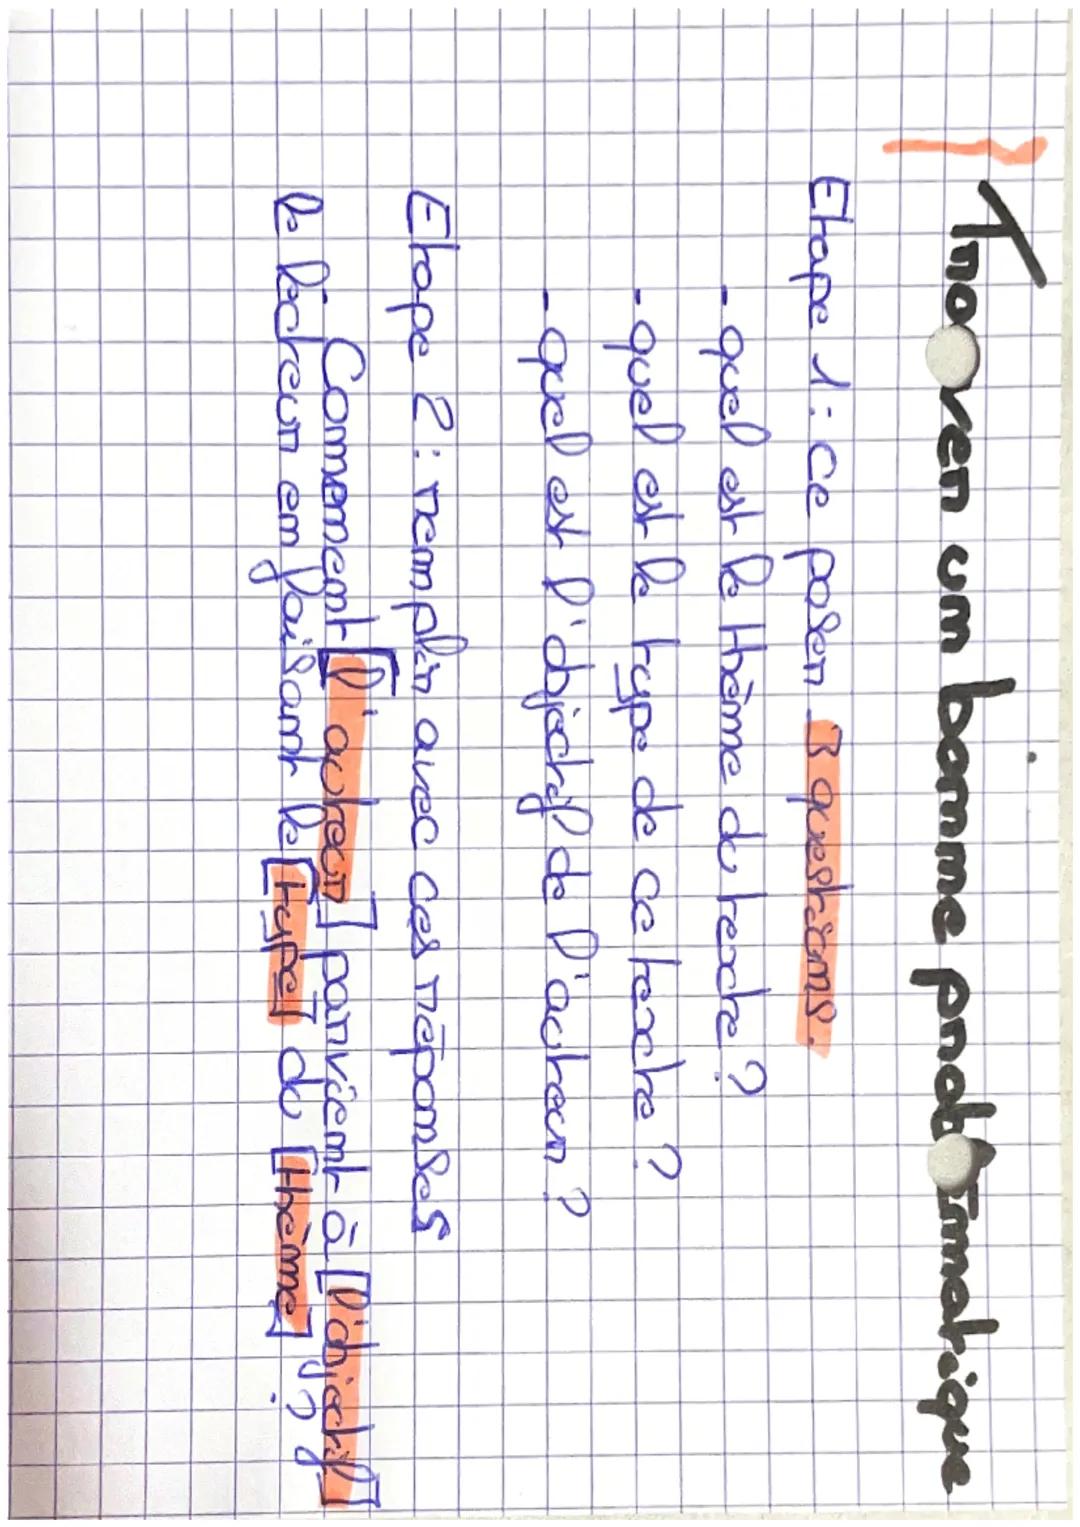 Trouver un bonne problématique
Etape 1 : Ce poser 3 questions.
- quel est le thème du texte ?
- quel est le type de ce texte ?
- quel est l'objectif de l'auteur ?
Etape 2 : remplir avec ces réponses
Comment [l'auteur] parvient à [l'objectif]
le lecteur en faisant le [type] du [thème] ?